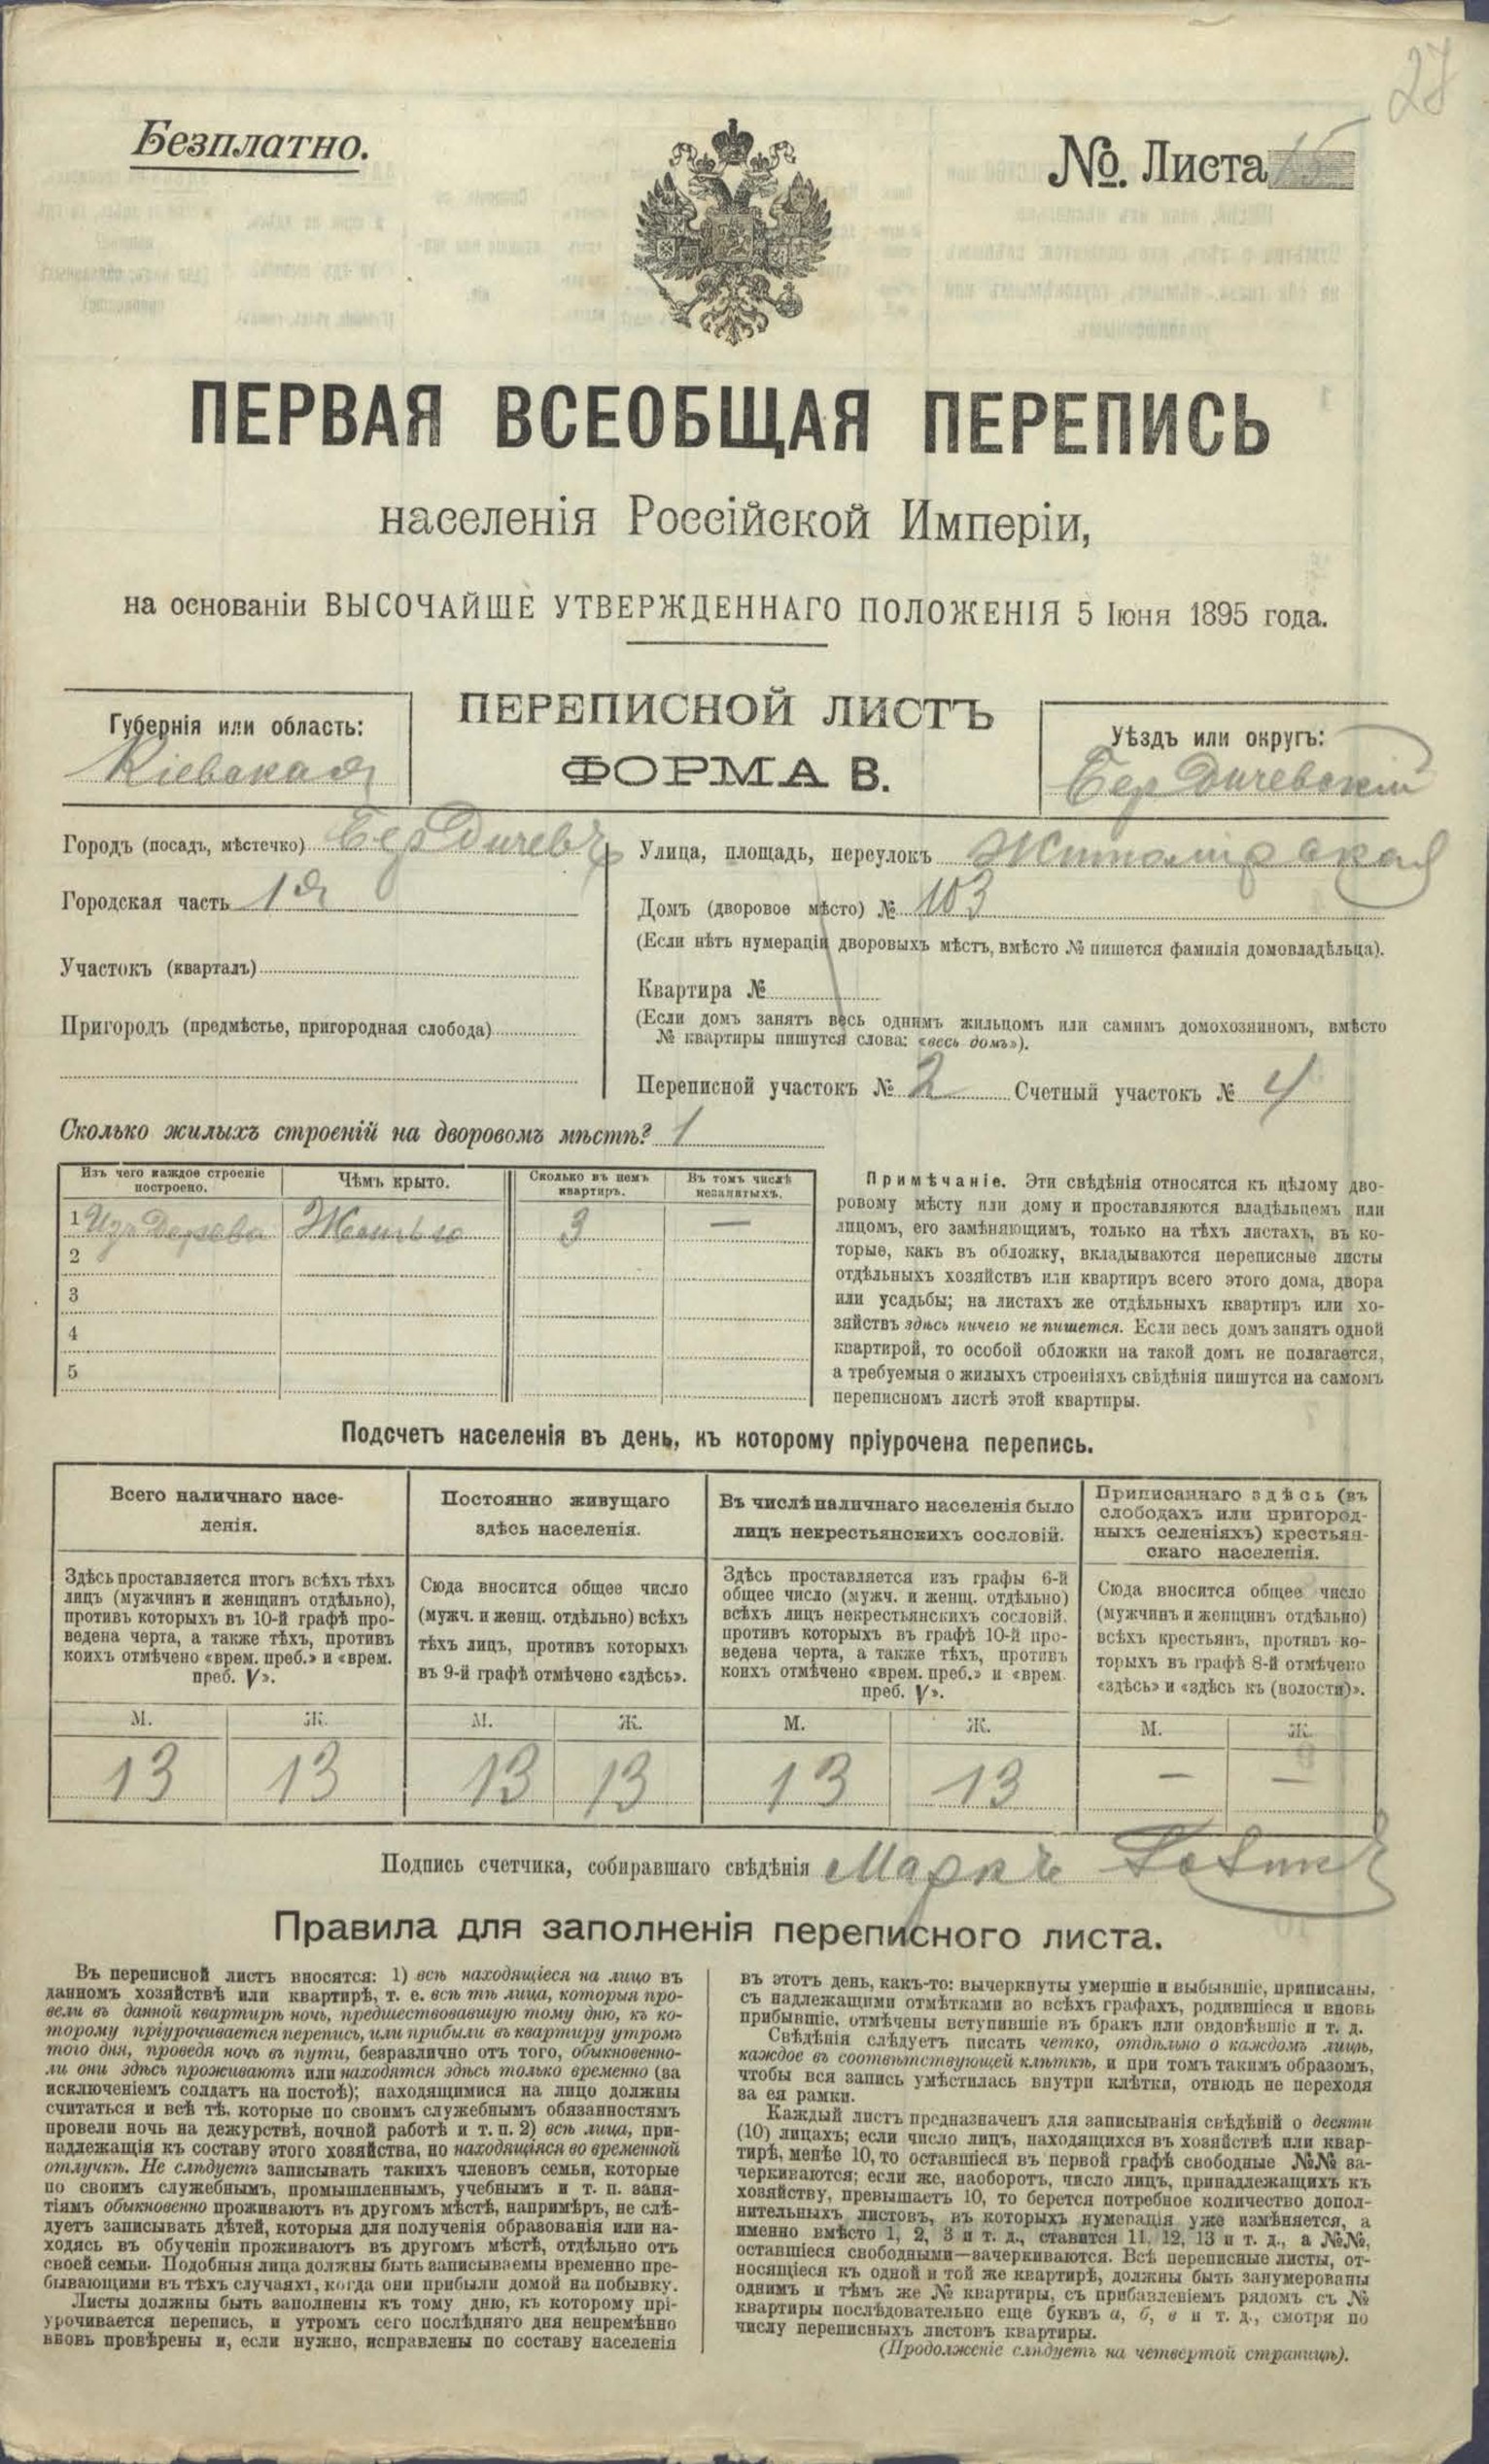 27
Безплатно.
№. Листа 15
ПЕРВАЯ ВСЕОБЩАЯ ПЕРЕПИСЬ
населенія Россійской Имперіи,
на основаніи ВЫСОЧАЙШЕ УТВЕРЖДЕННАГО ПОЛОЖЕНІЯ 5 Іюня 1895 года.
Губернія или область:
Кіевская
ПЕРЕПИСНОЙ ЛИСТЪ
ФОРМА В.
Уѣздъ или округъ:
Бердичевскій
Городъ (посадъ, мѣстечко) Бердичевъ
Городская часть 1я
Участокъ (кварталъ)
Пригородъ (предмѣстье, пригородная слобода)
Улица, площадь, переулокъ Житомірская
Домъ (дворовое мѣсто) № 103
(Если нѣтъ нумераціи дворовыхъ мѣстъ, вмѣсто № пишется фамилія домовладѣльца).
Квартира №
(Если домъ занятъ весь однимъ жильцомъ или самимъ домохозяиномъ, вмѣсто
№ квартиры пишутся слова: «весь домъ»).
Переписной участокъ № 2 Счетный участокъ № 4
Сколько жилыхъ строеній на дворовомъ мѣстѣ? 1
Изъ чего каждое строеніе
построено.
Чѣмъ крыто.
Сколько въ немъ
квартиръ.
Въ томъ числѣ
незанятыхъ.
1 Изъ дерева Жестью 3 —
2
3
4
5
Примѣчаніе. Эти свѣдѣнія относятся къ цѣлому дво-
ровому мѣсту или дому и проставляются владѣльцемъ или
лицомъ, его замѣняющимъ, только на тѣхъ листахъ, въ ко-
торые, какъ въ обложку, вкладываются переписные листы
отдѣльныхъ хозяйствъ или квартиръ всего этого дома, двора
или усадьбы; на листахъ же отдѣльныхъ квартиръ или хо-
зяйствъ здѣсь ничего не пишется. Если весь домъ занятъ одной
квартирой, то особой обложки на такой домъ не полагается,
а требуемыя о жилыхъ строеніяхъ свѣдѣнія пишутся на самомъ
переписномъ листѣ этой квартиры.
Подсчетъ населенія въ день, къ которому пріурочена перепись.
Всего наличнаго насе-
ленія.
Здѣсь проставляется итогъ всѣхъ тѣхъ
лицъ (мужчинъ и женщинъ отдѣльно),
противъ которыхъ въ 10-й графѣ про-
ведена черта, а также тѣхъ, противъ
коихъ отмѣчено «врем. преб.» и «врем.
преб. V».
М. Ж.
13 13
Постоянно живущаго
здѣсь населенія.
Сюда вносится общее число
(мужч. и женщ. отдѣльно) всѣхъ
тѣхъ лицъ, противъ которыхъ
въ 9-й графѣ отмѣчено «здѣсь».
М. Ж.
13 13
Въ числѣ наличнаго населенія было
лицъ некрестьянскихъ сословій.
Здѣсь проставляется изъ графы 6-й
общее число (мужч. и женщ. отдѣльно)
всѣхъ лицъ некрестьянскихъ сословій,
противъ которыхъ въ графѣ 10-й про-
ведена черта, а также тѣхъ, противъ
коихъ отмѣчено «врем. преб.» и «врем.
преб. V».
М. Ж.
13 13
Приписаннаго здѣсь (въ
слободахъ или пригород-
ныхъ селеніяхъ) крестьян-
скаго населенія.
Сюда вносится общее число
(мужчинъ и женщинъ отдѣльно)
всѣхъ крестьянъ, противъ ко-
торыхъ въ графѣ 8-й отмѣчено
«здѣсь» и «здѣсь къ (волости)».
М. Ж.
— —
Подпись счетчика, собиравшаго свѣдѣнія Маркъ
Правила для заполненія переписного листа.
Въ переписной листъ вносятся: 1) всѣ находящіеся на лицо въ
данномъ хозяйствѣ или квартирѣ, т. е. всѣ тѣ лица, которыя про-
вели въ данной квартирѣ ночь, предшествовавшую тому дню, къ ко-
торому пріурочивается перепись, или прибыли въ квартиру утромъ
того дня, проведя ночь въ пути, безразлично отъ того, обыкновенно-
ли они здѣсь проживаютъ или находятся здѣсь только временно (за
исключеніемъ солдатъ на постоѣ); находящимися на лицо должны
считаться и всѣ тѣ, которые по своимъ служебнымъ обязанностямъ
провели ночь на дежурствѣ, ночной работѣ и т. п. 2) всѣ лица, при-
надлежащія къ составу этого хозяйства, но находящіяся во временной
отлучкѣ. Не слѣдуетъ записывать такихъ членовъ семьи, которые
по своимъ служебнымъ, промышленнымъ, учебнымъ и т. п. заня-
тіямъ обыкновенно проживаютъ въ другомъ мѣстѣ, напримѣръ, не слѣ-
дуетъ записывать дѣтей, которыя для полученія образованія или на-
ходясь въ обученіи проживаютъ въ другомъ мѣстѣ, отдѣльно отъ
своей семьи. Подобныя лица должны быть записываемы временно пре-
бывающими въ тѣхъ случаяхъ, когда они прибыли домой на побывку.
Листы должны быть заполнены къ тому дню, къ которому прі-
урочивается перепись, и утромъ сего послѣдняго дня непремѣнно
вновь провѣрены и, если нужно, исправлены по составу населенія
въ этотъ день, какъ-то: вычеркнуты умершіе и выбывшіе, приписаны,
съ надлежащими отмѣтками во всѣхъ графахъ, родившіеся и вновь
прибывшіе, отмѣчены вступившіе въ бракъ или овдовѣвшіе и т. д.
Свѣдѣнія слѣдуетъ писать четко, отдѣльно о каждомъ лицѣ,
каждое въ соотвѣтствующей клѣткѣ, и при томъ такимъ образомъ,
чтобы вся запись умѣстилась внутри клѣтки, отнюдь не переходя
за ея рамки.
Каждый листъ предназначенъ для записыванія свѣдѣній о десяти
(10) лицахъ; если число лицъ, находящихся въ хозяйствѣ или квар-
тирѣ, менѣе 10, то оставшіеся въ первой графѣ свободные №№ за-
черкиваются; если же, наоборотъ, число лицъ, принадлежащихъ къ
хозяйству, превышаетъ 10, то берется потребное количество допол-
нительныхъ листовъ, въ которыхъ нумерація уже измѣняется, а
именно вмѣсто 1, 2, 3 и т. д., ставится 11, 12, 13 и т. д., а №№,
оставшіеся свободными—зачеркиваются. Всѣ переписные листы, от-
носящіеся къ одной и той же квартирѣ, должны быть занумерованы
однимъ и тѣмъ же № квартиры, съ прибавленіемъ рядомъ съ №
квартиры послѣдовательно еще буквъ а, б, в и т. д., смотря по
числу переписныхъ листовъ квартиры.
(Продолженіе слѣдуетъ на четвертой страницѣ).